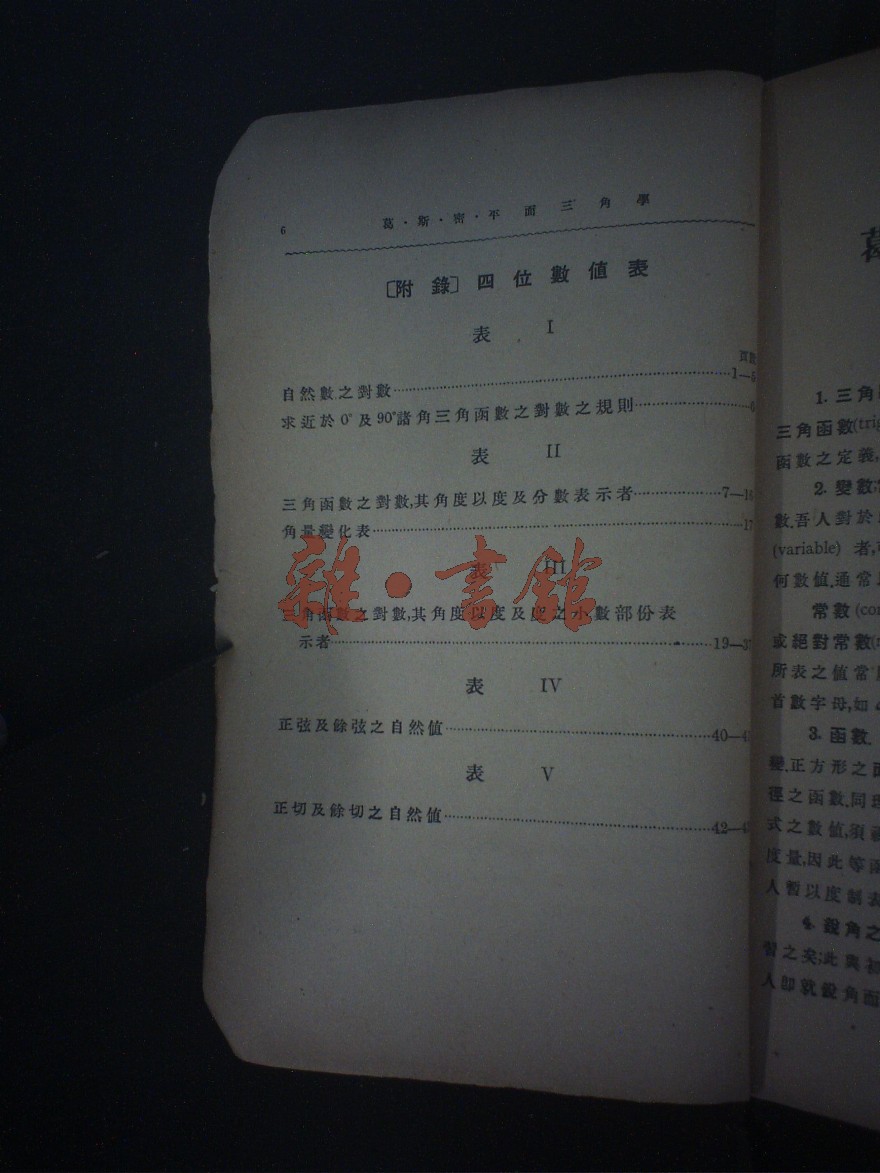 6 葛·斯·密·平面三角學
〔附錄〕四位數值表
表 I
頁數
自然數之對數 1—5
求近於0°及90°諸角三角函數之對數之規則 6
表 II
三角函數之對數,其角度以度及分數表示者 7—16
角量變化表 17
表 III
三角函數之對數,其角度以度及度之小數部份表
示者 19—37
表 IV
正弦及餘弦之自然值 40—41
表 V
正切及餘切之自然值 42—
雜·書館
葛
1. 三角
三角函數(trig
函數之定義,
2. 變數,
數.吾人對於
(variable) 者,
何數值,通常
常數 (con
或絕對常數
所表之值常
首數字母,如
3. 函數.
變.正方形之面
徑之函數.同理
式之數值,須
度量,因此等函
人暫以度制表
4. 銳角之
習之矣;此與初
人即就銳角而